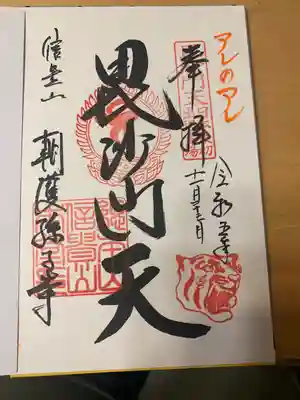 アレのアレ
奉拝
令和五年
毘沙門天
信貴山
朝護孫子寺